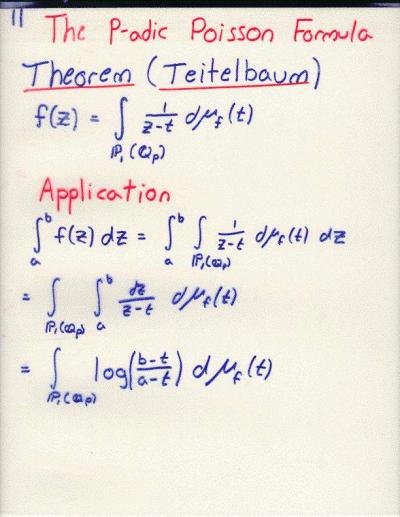 11
The P-adic Poisson Formula
Theorem (Teitelbaum)
f(z) = ∫_{P₁(ℚp)} 1/(z-t) dμ_f(t)
Application
∫_a^b f(z) dz = ∫_a^b ∫_{P₁(ℚp)} 1/(z-t) dμ_f(t) dz
= ∫_{P₁(ℚp)} ∫_a^b dz/(z-t) dμ_f(t)
= ∫_{P₁(ℚp)} log((b-t)/(a-t)) dμ_f(t)